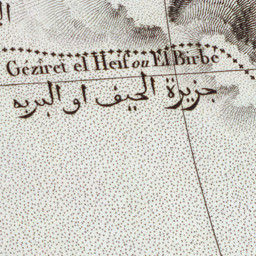 Géziret el Heif ou El Birbé
جزيرة الحيف او البربه